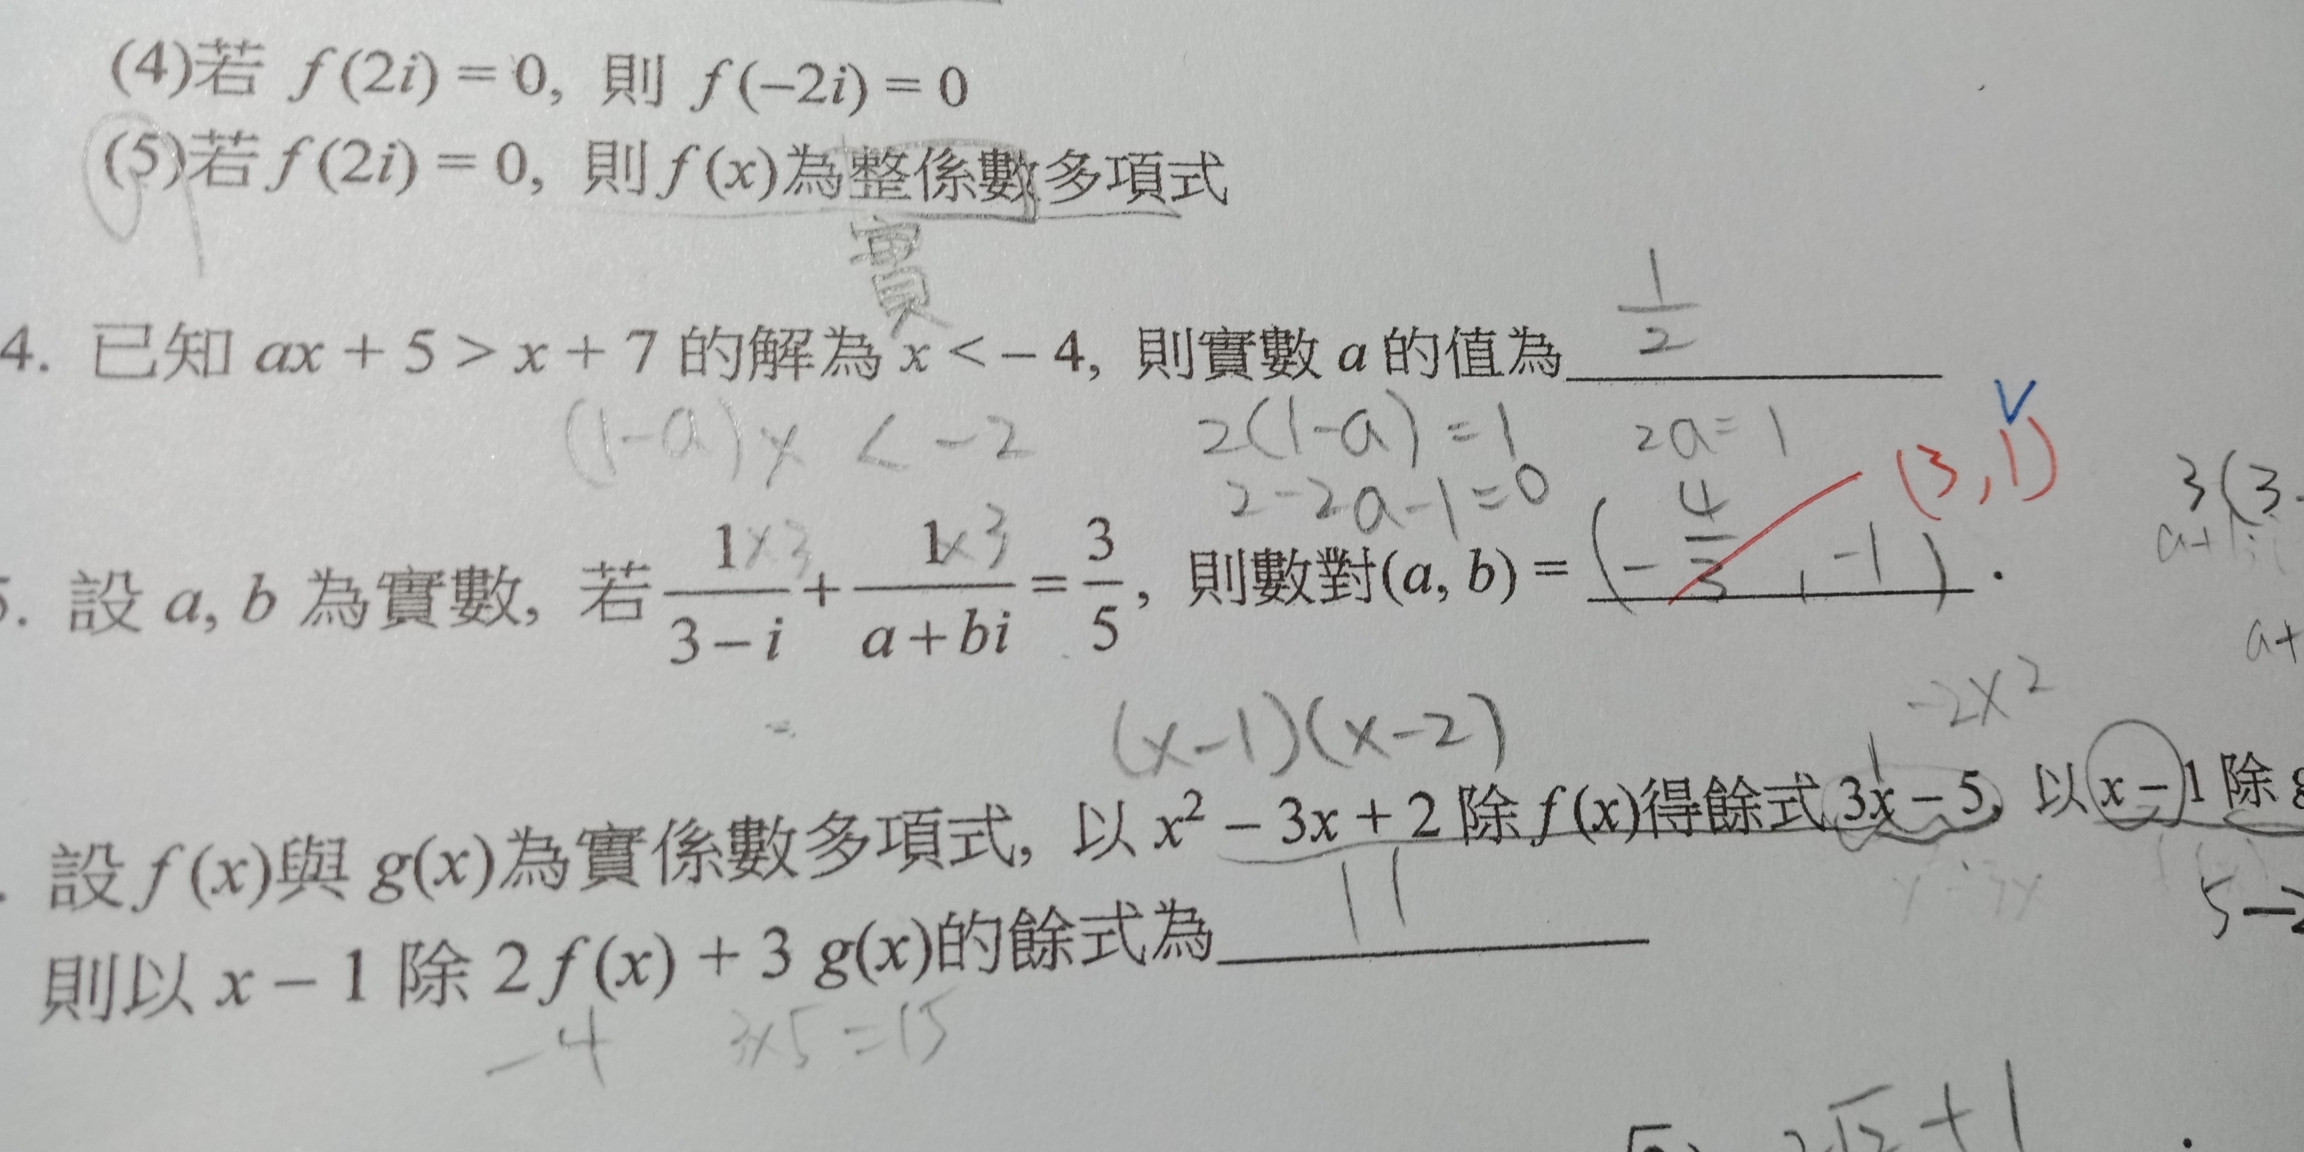 (4)若 f(2i) = 0, 則 f(−2i) = 0
(5)若 f(2i) = 0, 則 f(x)為整係數多項式
實
4. 已知 ax + 5 > x + 7 的解為 x < − 4, 則實數 a 的值為 1/2
(1-a)x < -2 2(1-a) = 1 2a = 1
2-2a-1=0
(3,1)
3(3
. 設 a, b 為實數, 若 1/(3 − i) + 1/(a + bi) = 3/5, 則數對(a, b) = (-4/3, -1).
×3 ×3
a+
-2x²
(x-1)(x-2)
. 設 f (x)與 g(x)為實係數多項式, 以 x² − 3x + 2 除 f (x)得餘式 3x − 5, 以 x − 1 除
5-2
則以 x − 1 除 2 f (x) + 3 g(x)的餘式為 11
-4 3×5=15
√2+1